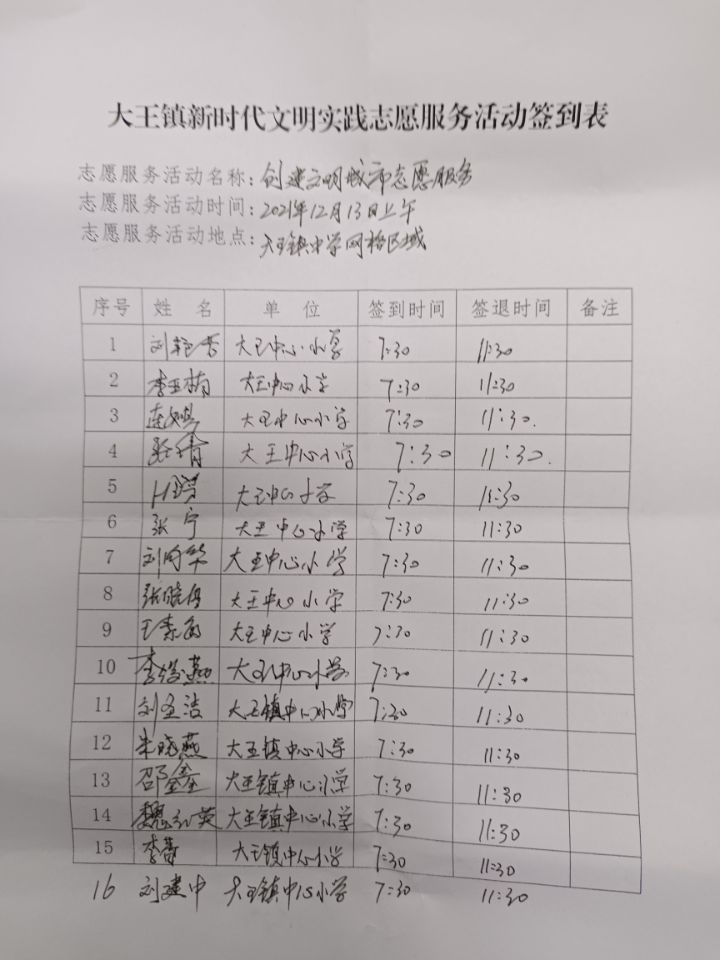 大王镇新时代文明实践志愿服务活动签到表
志愿服务活动名称：创建文明城市志愿服务
志愿服务活动时间：2021年12月13日上午
志愿服务活动地点：大王镇中学网格区域
序号 姓 名 单 位 签到时间 签退时间 备注
1 刘艳香 大王中心小学 7:30 11:30
2 李亚楠 大王中心小学 7:30 11:30
3 大王中心小学 7:30 11:30.
4 张倩 大王中心小学 7:30 11:30.
5 大王中心小学 7:30 11:30
6 张宁 大王中心小学 7:30 11:30
7 刘向华 大王中心小学 7:30 11:30
8 张晓丹 大王中心小学 7:30 11:30
9 王素 大王中心小学 7:30 11:30
10 李俊燕 大王中心小学 7:30 11:30
11 刘圣洁 大王镇中心小学 7:30 11:30
12 朱晓燕 大王镇中心小学 7:30 11:30
13 邵鑫 大王镇中心小学 7:30 11:30
14 魏红英 大王镇中心小学 7:30 11:30
15 李蕾 大王镇中心小学 7:30 11:30
16 刘建中 大王镇中心小学 7:30 11:30